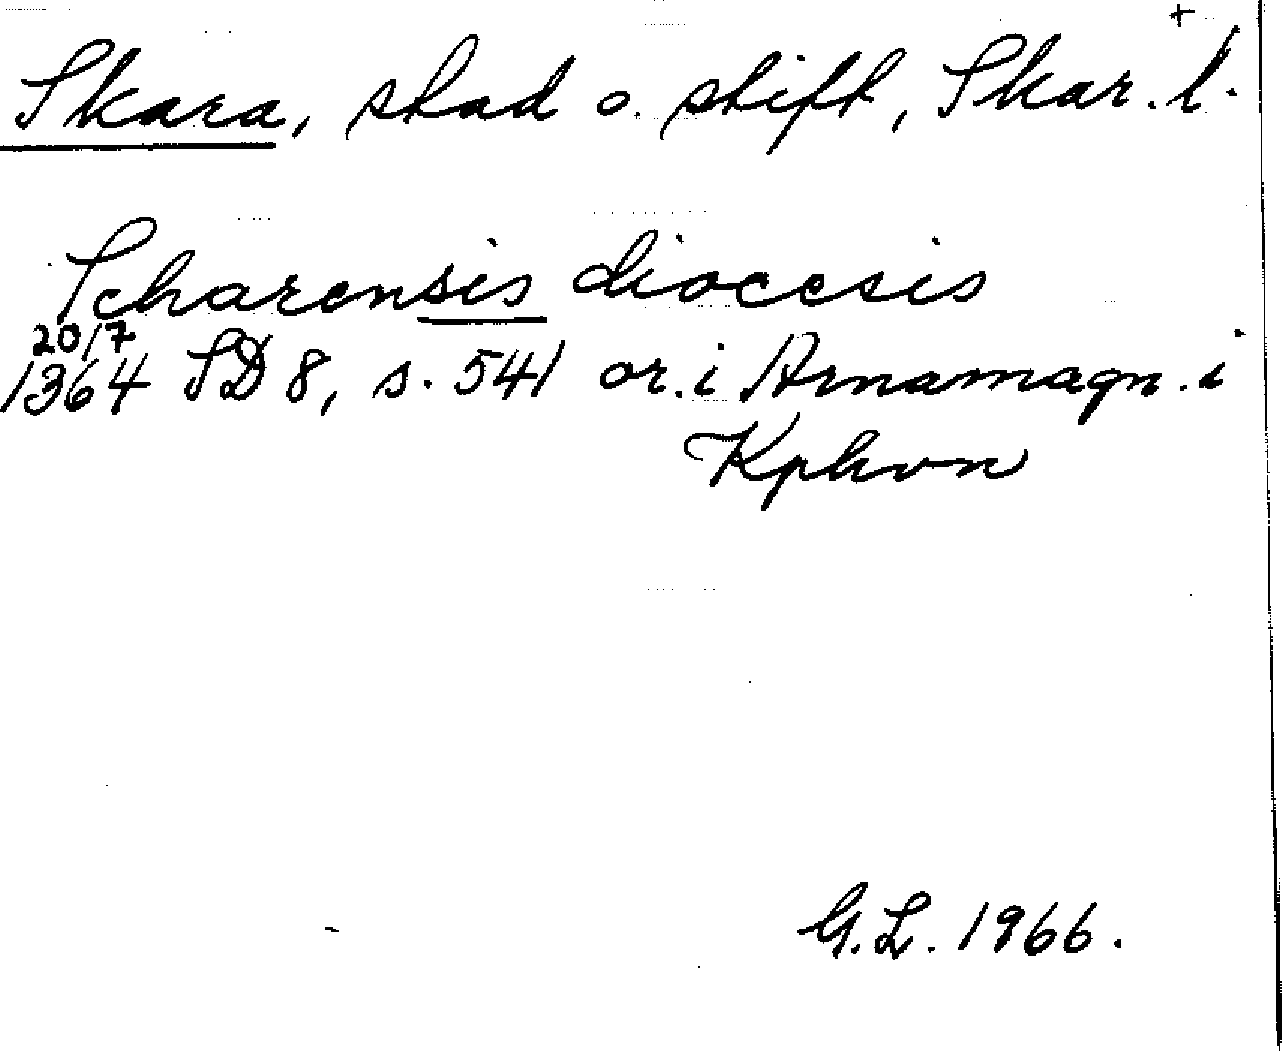 +
Skara, stad o. stift, Skar. l.
Scharensis diocesis
20/7
1364 SD 8, s. 541 or. i Arnamagn. i
Kphvn
G.L. 1966.